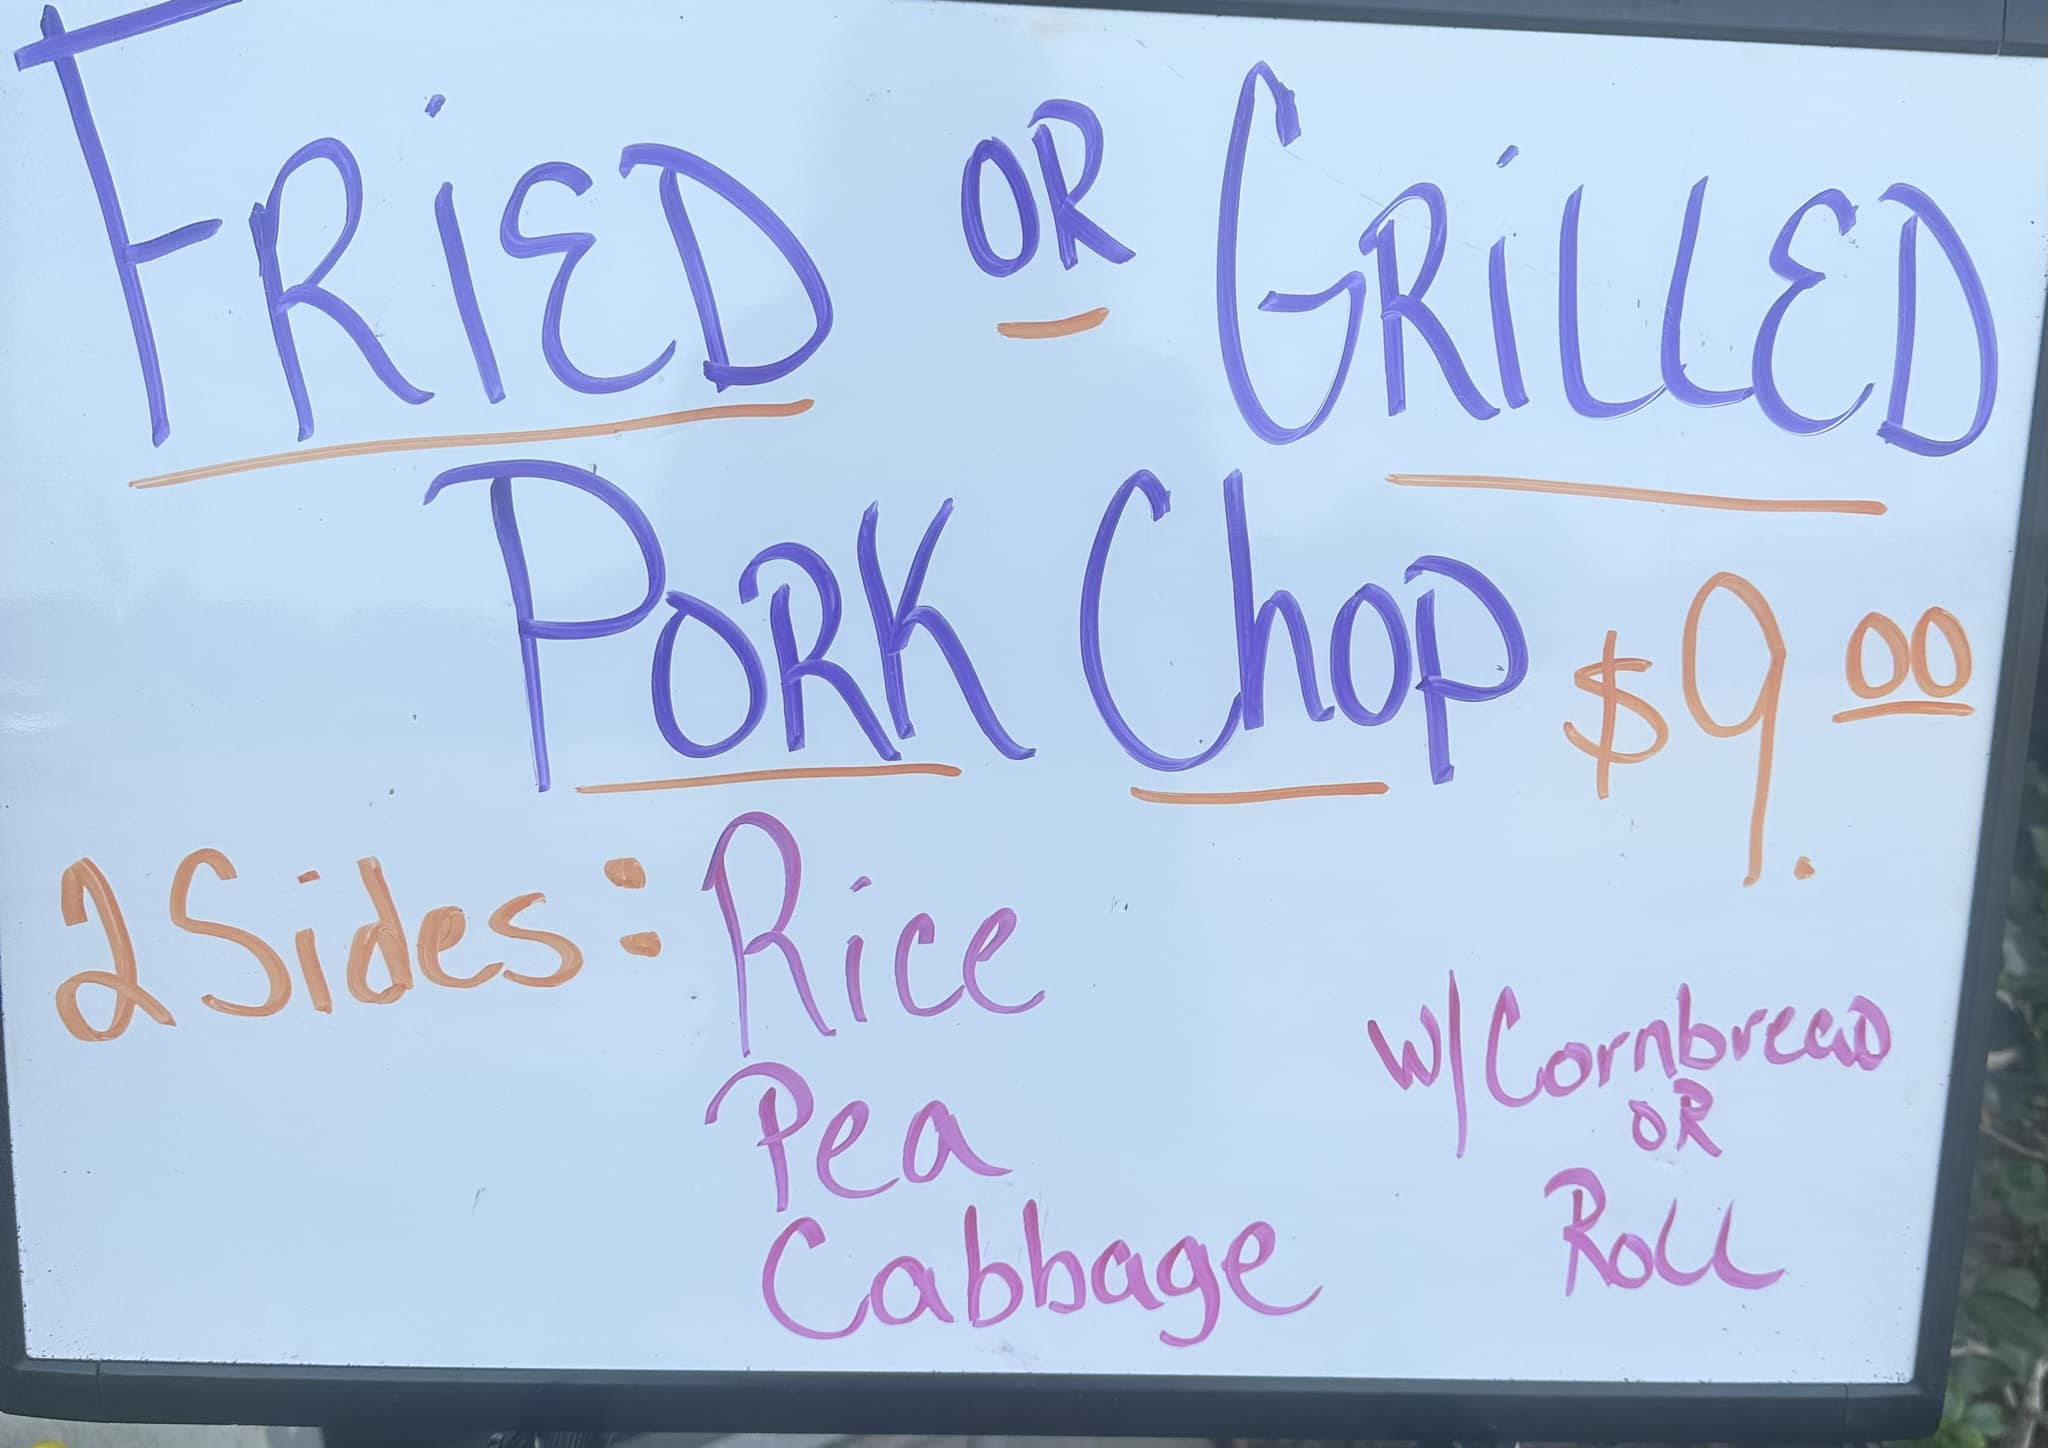 FRiED OR GRiLLED
PORK ChOP $9.00
2 Sides: Rice
Pea
Cabbage
W/ CornbreaD
OR
Roll